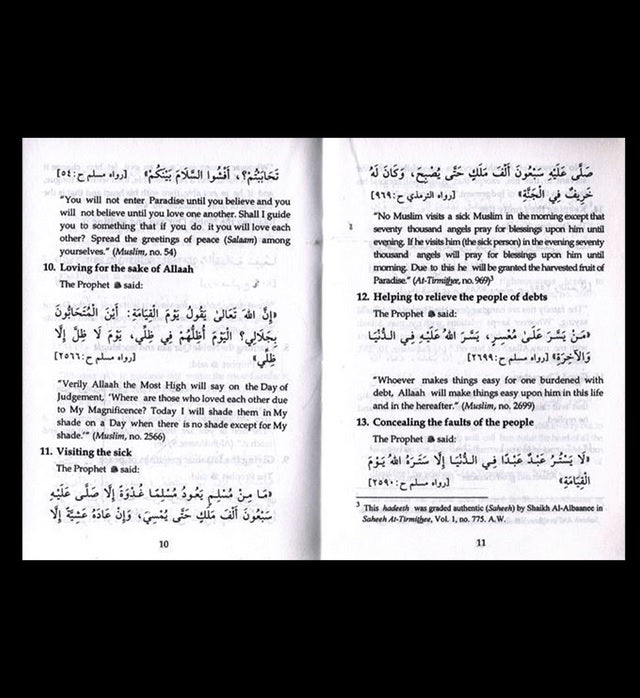 تَحَابَبْتُمْ؟، أَفْشُوا السَّلَامَ بَيْنَكُمْ» [رواه مسلم ح:٥٤]
"You will not enter Paradise until you believe and you
will not believe until you love one another. Shall I guide
you to something that if you do it you will love each
other? Spread the greetings of peace (Salaam) among
yourselves." (Muslim, no. 54)
10. Loving for the sake of Allaah
The Prophet ﷺ said:
«إِنَّ اللهَ تَعَالَىٰ يَقُولُ يَوْمَ الْقِيَامَةِ: أَيْنَ الْمُتَحَابُّونَ
بِجَلَالِي؟ الْيَوْمَ أُظِلُّهُمْ فِي ظِلِّي، يَوْمَ لَا ظِلَّ إِلَّا
ظِلِّي» [رواه مسلم ح:٢٥٦٦]
"Verily Allaah the Most High will say on the Day of
Judgement, 'Where are those who loved each other due
to My Magnificence? Today I will shade them in My
shade on a Day when there is no shade except for My
shade.'" (Muslim, no. 2566)
11. Visiting the sick
The Prophet ﷺ said:
«مَا مِنْ مُسْلِمٍ يَعُودُ مُسْلِمًا غُدْوَةً إِلَّا صَلَّى عَلَيْهِ
سَبْعُونَ أَلْفَ مَلَكٍ حَتَّى يُمْسِيَ، وَإِنْ عَادَهُ عَشِيَّةً إِلَّا
10
صَلَّى عَلَيْهِ سَبْعُونَ أَلْفَ مَلَكٍ حَتَّى يُصْبِحَ، وَكَانَ لَهُ
خَرِيفٌ فِي الْجَنَّةِ» [رواه الترمذي ح:٩٦٩]
"No Muslim visits a sick Muslim in the morning except that
seventy thousand angels pray for blessings upon him until
evening. If he visits him (the sick person) in the evening seventy
thousand angels will pray for blessings upon him until
morning. Due to this he will be granted the harvested fruit of
Paradise." (At-Tirmithee, no. 969)³
12. Helping to relieve the people of debts
The Prophet ﷺ said:
«مَنْ يَسَّرَ عَلَىٰ مُعْسِرٍ، يَسَّرَ اللهُ عَلَيْهِ فِي الدُّنْيَا
وَالآخِرَةِ» [رواه مسلم ح:٢٦٩٩]
"Whoever makes things easy for one burdened with
debt, Allaah will make things easy upon him in this life
and in the hereafter." (Muslim, no. 2699)
13. Concealing the faults of the people
The Prophet ﷺ said:
«لَا يَسْتُرُ عَبْدٌ عَبْدًا فِي الدُّنْيَا إِلَّا سَتَرَهُ اللهُ يَوْمَ
الْقِيَامَةِ» [رواه مسلم ح:٢٥٩٠]
³ This hadeeth was graded authentic (Saheeh) by Shaikh Al-Albaanee in
Saheeh At-Tirmithee, Vol. 1, no. 775. A.W.
11